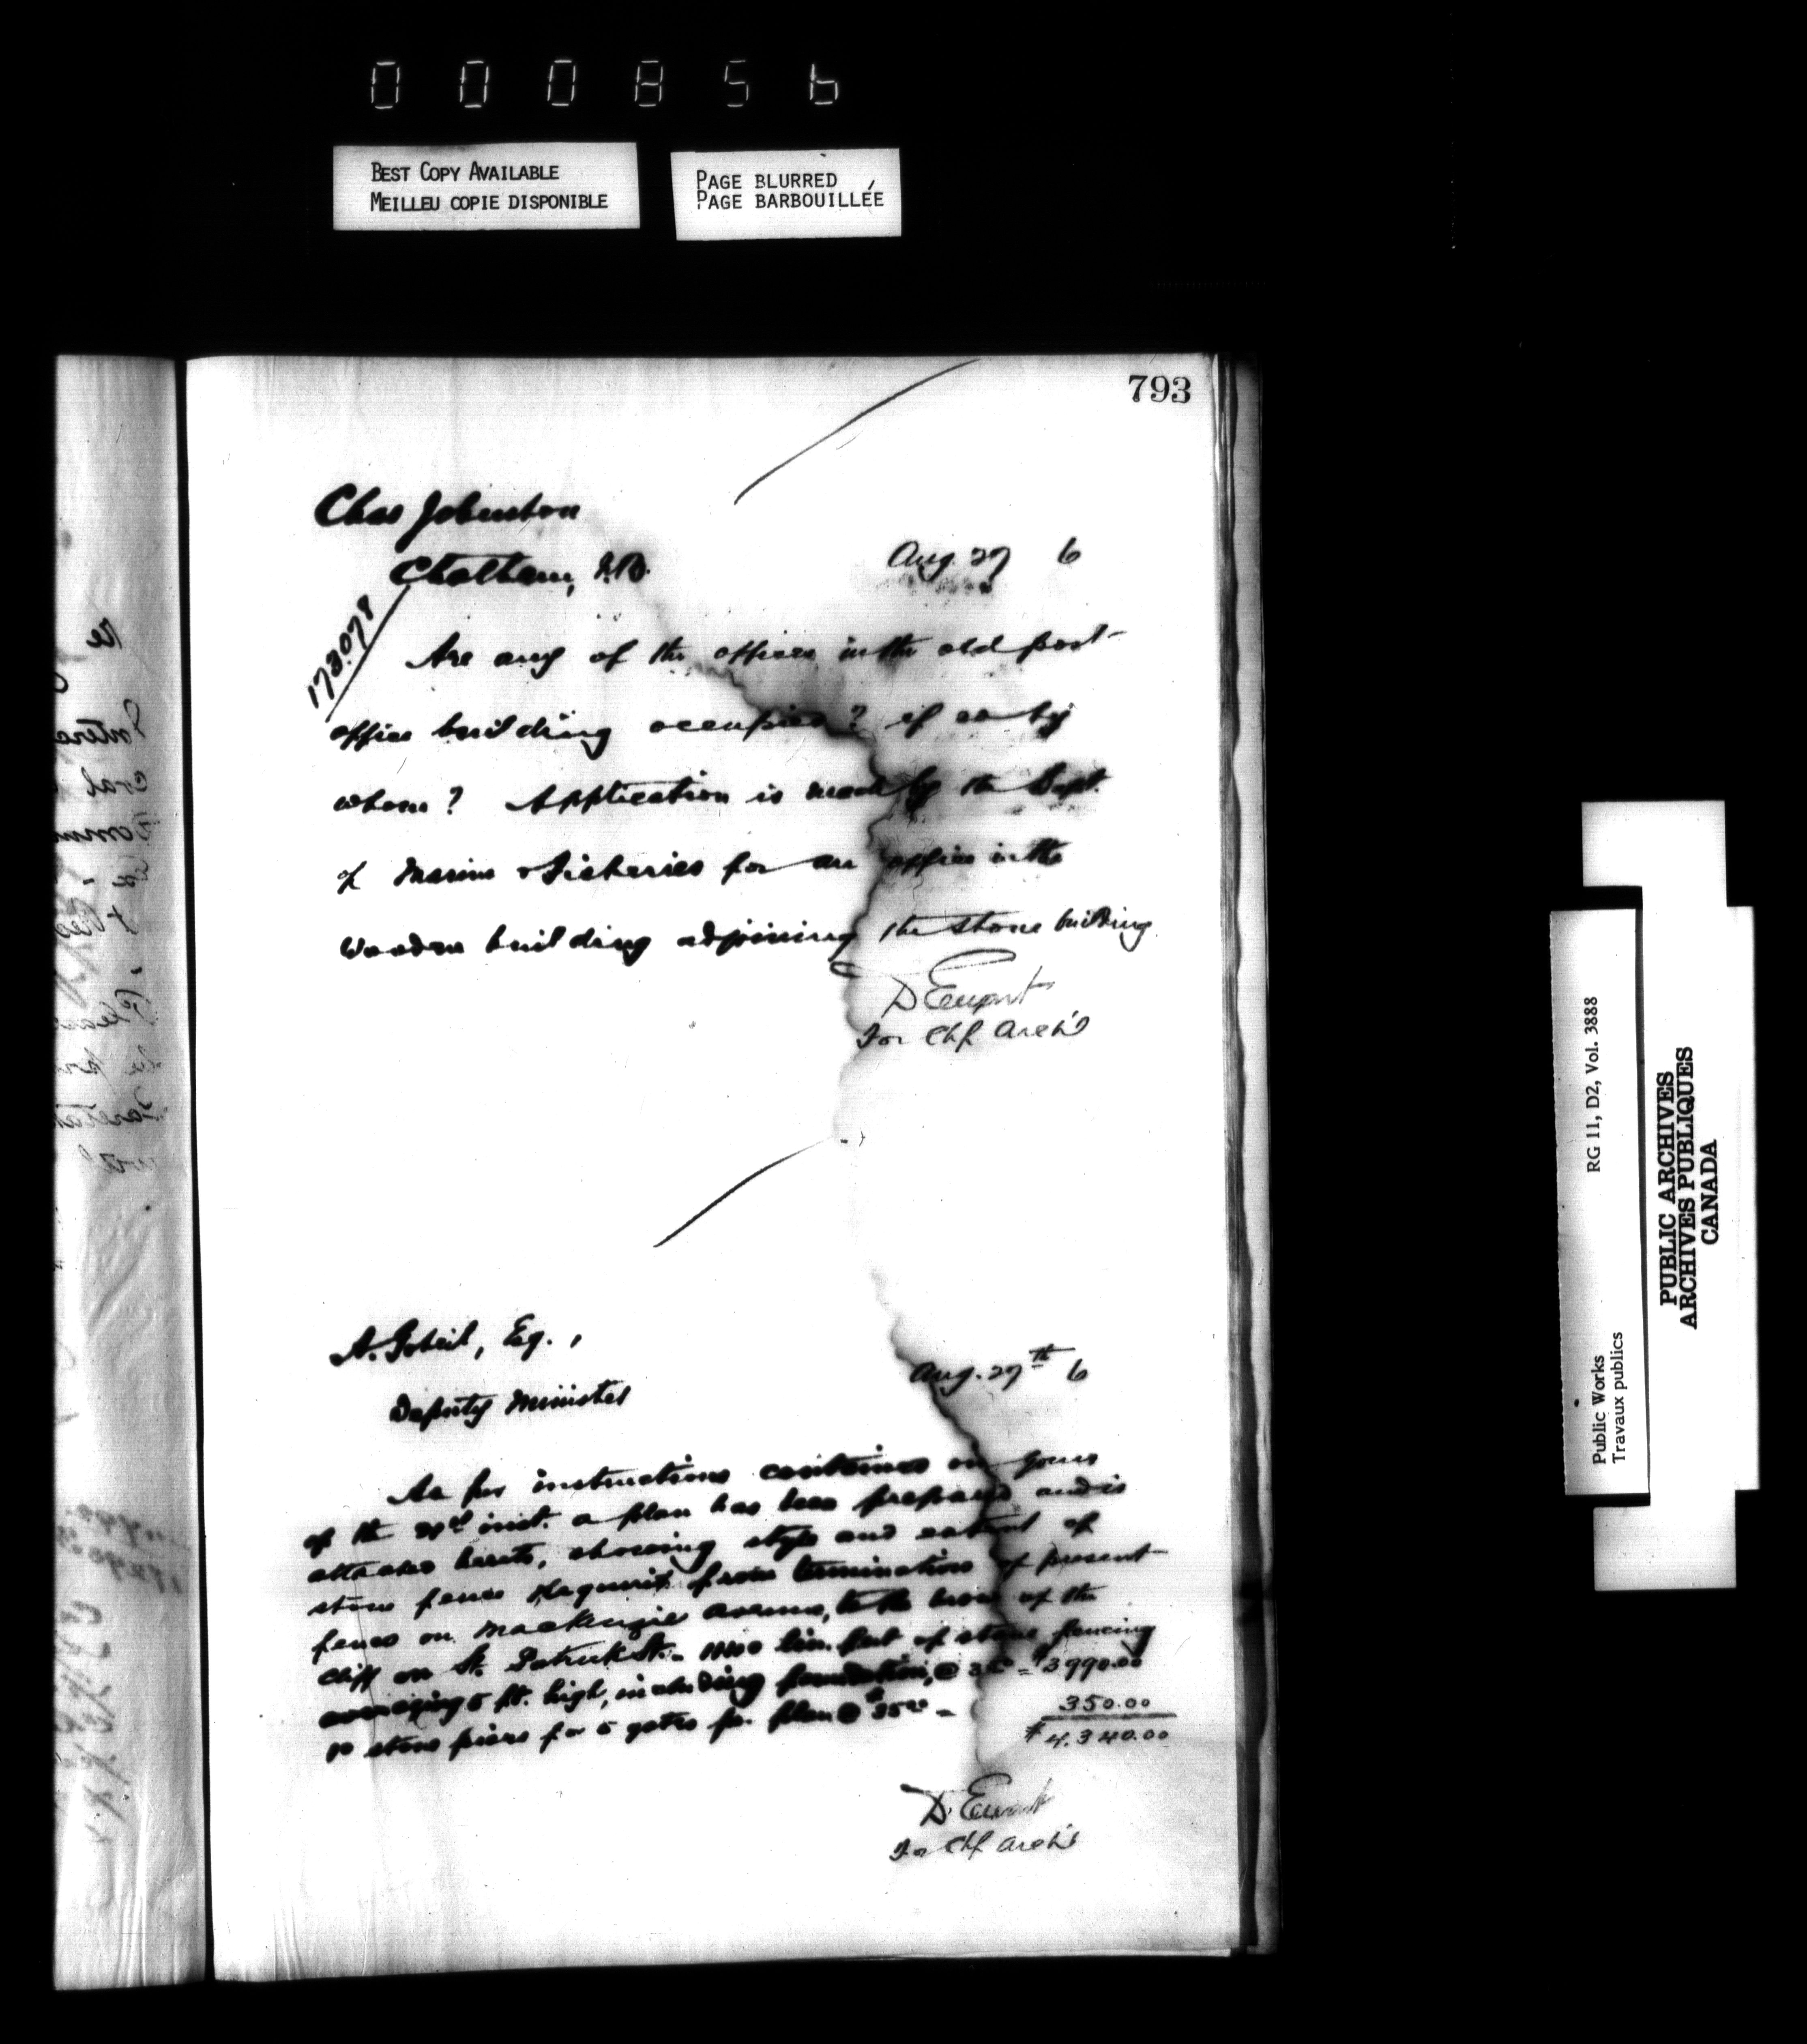 000856
BEST COPY AVAILABLE
MEILLEU COPIE DISPONIBLE
PAGE BLURRED
PAGE BARBOUILLÉE
793
Chas Johnston
Chatham, N.B.
Aug. 27 6
178078
Are any of the offices in the old post-
office building occupied? if so by
whom? Application is made by the Dept.
of Marine & Fisheries for an office in the
Wooden building adjoining the stone building
D Ewart
For Chf Arch't
A. Gobeil, Eq.,
Deputy Minister
Aug. 27th 6
As per instructions contained on yours
of the inst. a plan has been prepared and is
attached hereto, showing style and extent of
stone fence required from termination of present
fence on MacKenzie Avenue, to the brow of the
Cliff on St. Patrick St. - lin. feet of stone fencing
averaging 5 ft. high, including foundation, @ = $3990.00
10 stone piers for 5 gates pr. plan @ $35.00 = 350.00
$4,340.00
D. Ewart
For Chf Arch't
RG 11, D2, Vol. 3888
Public Works
Travaux publics
PUBLIC ARCHIVES
ARCHIVES PUBLIQUES
CANADA